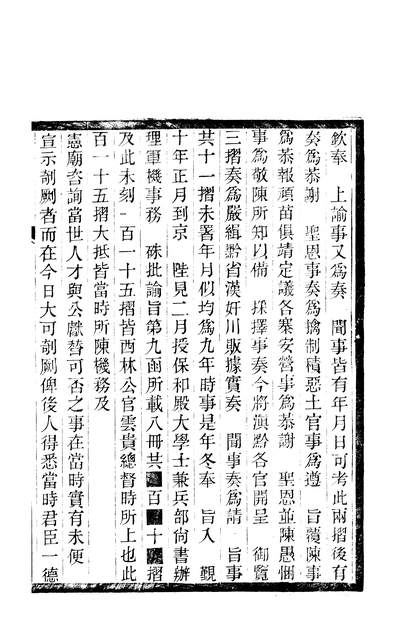 欽奉　上諭事又爲奏　聞事皆有年月日可考此兩摺後有
奏爲恭謝　聖恩事奏爲擒制積惡土官事爲遵　旨覆陳事
爲恭報頑苗俱靖定議各寨安營事爲恭謝　聖恩並陳愚悃
事爲敬陳所知以備　採擇事奏今將滇黔各官開呈　御覽
三摺奏爲嚴緝黔省漢奸川販據實奏　聞事奏爲請　旨事
共十一摺未署年月似均爲九年時事是年冬奉　旨入　覲
十年正月到京　陛見二月授保和殿大學士兼兵部尙書辦
理軍機事務　硃批諭旨第九函所載八冊共百十摺
及此未刻一百一十五摺皆西林公官雲貴總督時所上也此
百一十五摺大抵皆當時所陳機務及
憲廟咨詢當世人才與公獻替可否之事在當時實有未便
宣示剞劂者而在今日大可剞劂俾後人得悉當時君臣一德